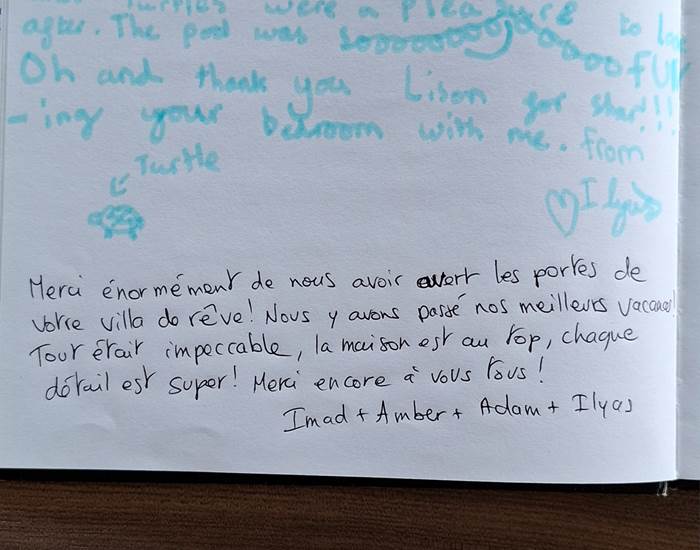 Turtles were a pleasure to
after. The pool was soooooooooooooo fun
Oh and thank you Lison for shar!!!
-ing your bedroom with me. From
Turtle
Ilyas
Merci énormément de nous avoir ouvert les portes de
votre villa de rêve! Nous y avons passé nos meilleurs vacances!
Tout était impeccable, la maison est au top, chaque
détail est super! Merci encore à vous tous!
Imad + Amber + Adam + Ilyas